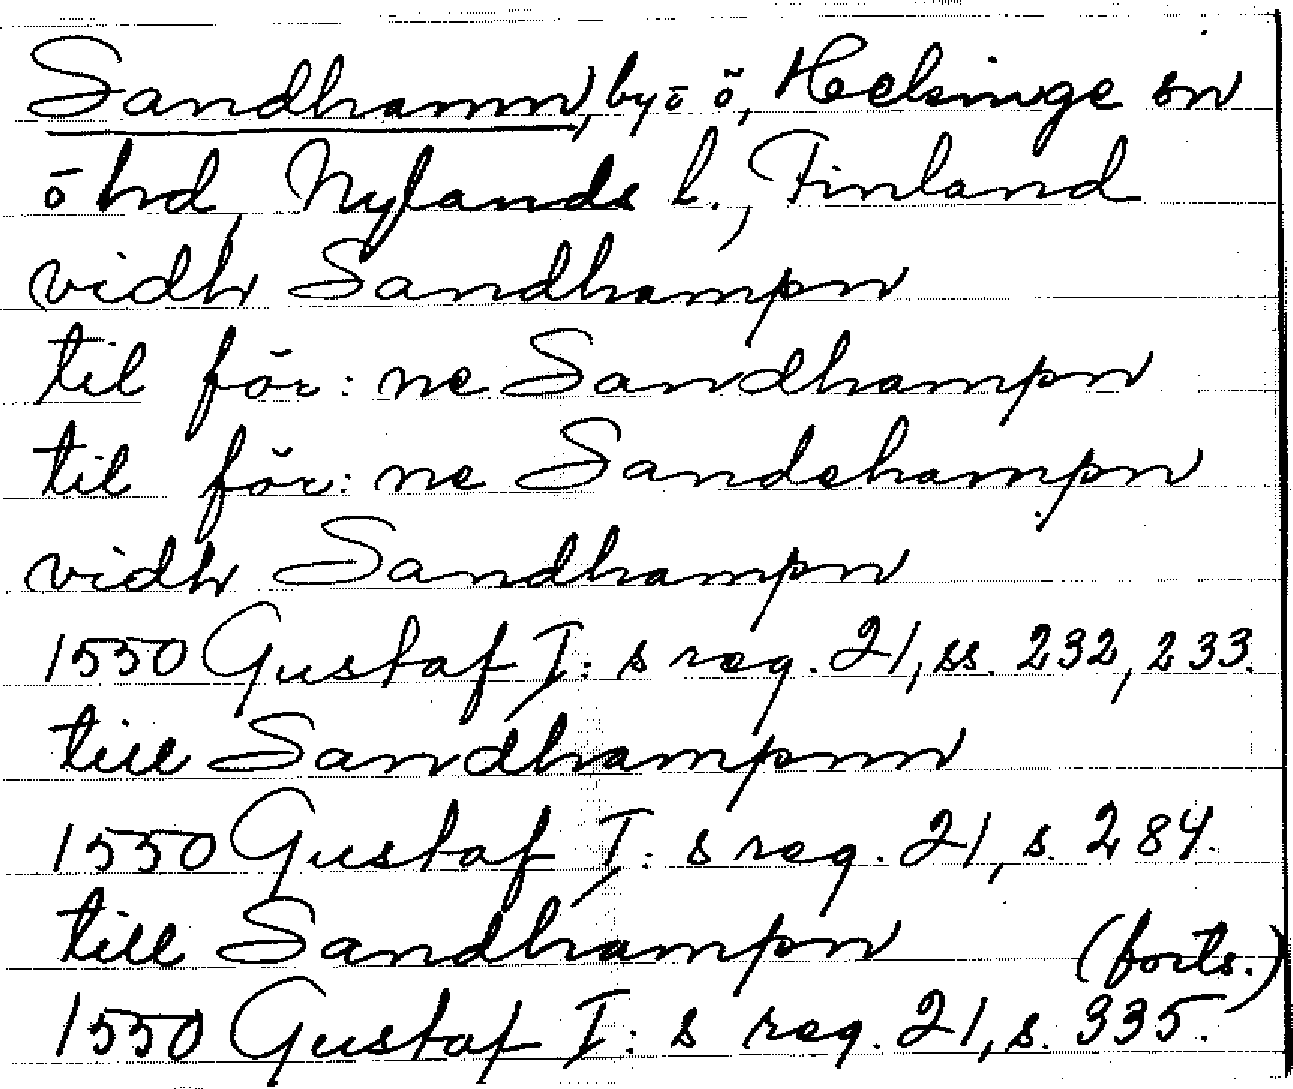 Sandhamn, by o ö, Helsinge sn
o hd, Nylands l., Finland
vidh Sandhampn
til för: ne Sandhampn
til för: ne Sandehampn
vidh Sandhampn
1550 Gustaf I: s reg. 21, ss. 232, 233.
till Sandhampnn
1550 Gustaf I: s reg. 21, s. 284.
till Sandhampn (forts.)
1550 Gustaf I: s reg. 21, s. 335.